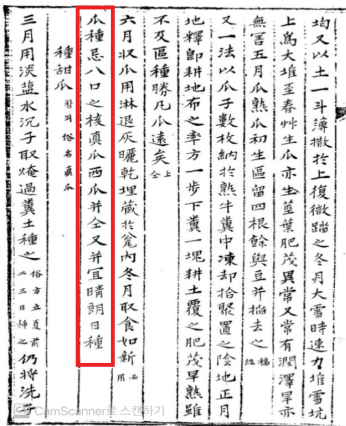 均又以土一斗薄撒於上復撤踏之冬月大雪時速力堆雪坑
上爲大堆至春艸生瓜亦生莖葉肥茂異常又常有潤澤旱亦
無害五月瓜熟瓜初生區留四根餘與豆并掐去之
又一法以瓜子數枚納於熟牛糞中凍却拾聚置之陰地正月
地釋卽耕地布之率方一步下糞一塊耕土覆之肥茂早熟雖
不及區種勝凡瓜遠矣 仝上
六月收瓜用淋退灰曬乾埋藏於瓮內冬月取食如新 必用
瓜種忌八口之核眞瓜西瓜并仝又并宜晴朗日種
種甜瓜 俗名眞瓜
三月用淡盐水沉子取淹過糞土種之 俗方立夏前二三日種之 仍將洗子
CamScanner로 스캔하기